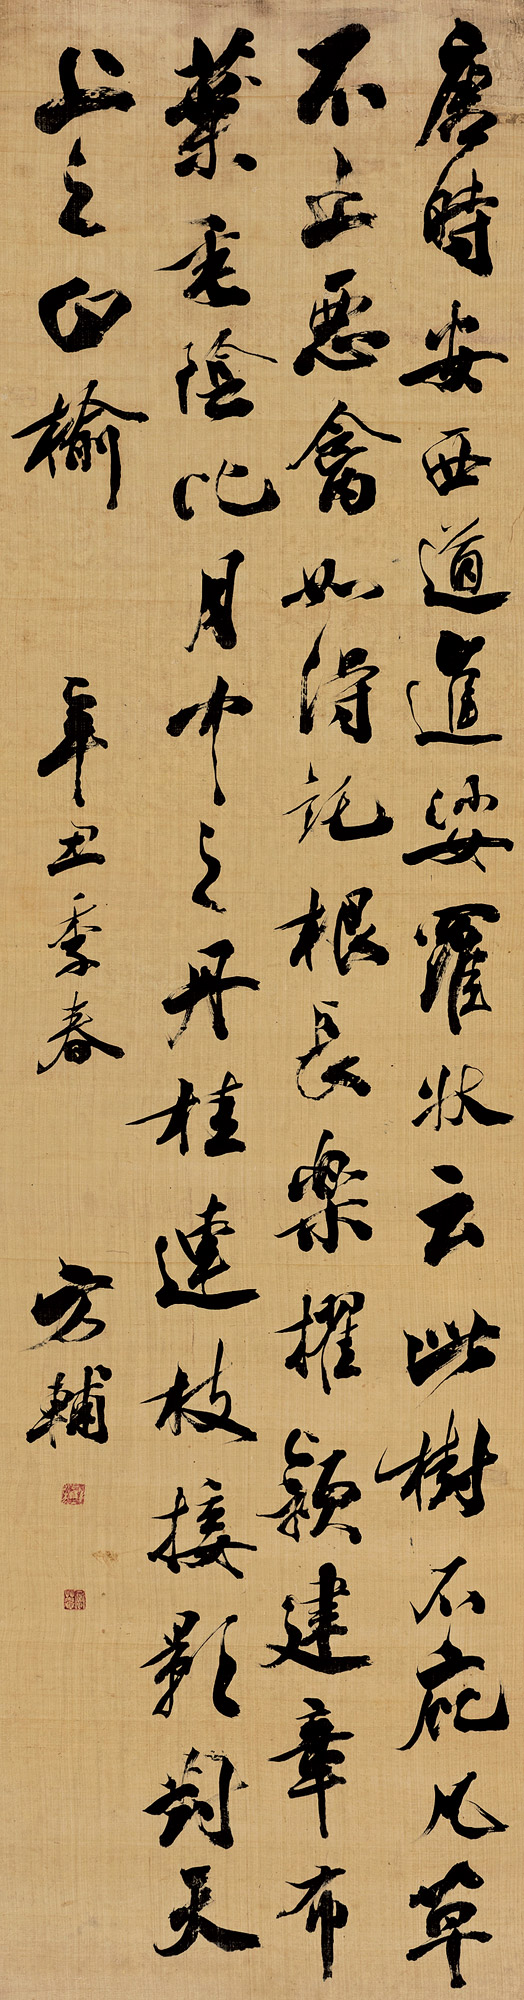 唐時安西道進娑羅狀云此樹不庇凡草
不止惡禽如得託根長樂擢穎建章布
葉垂陰比月中之丹桂連枝接影對天
上之白榆
辛丑季春
方輔